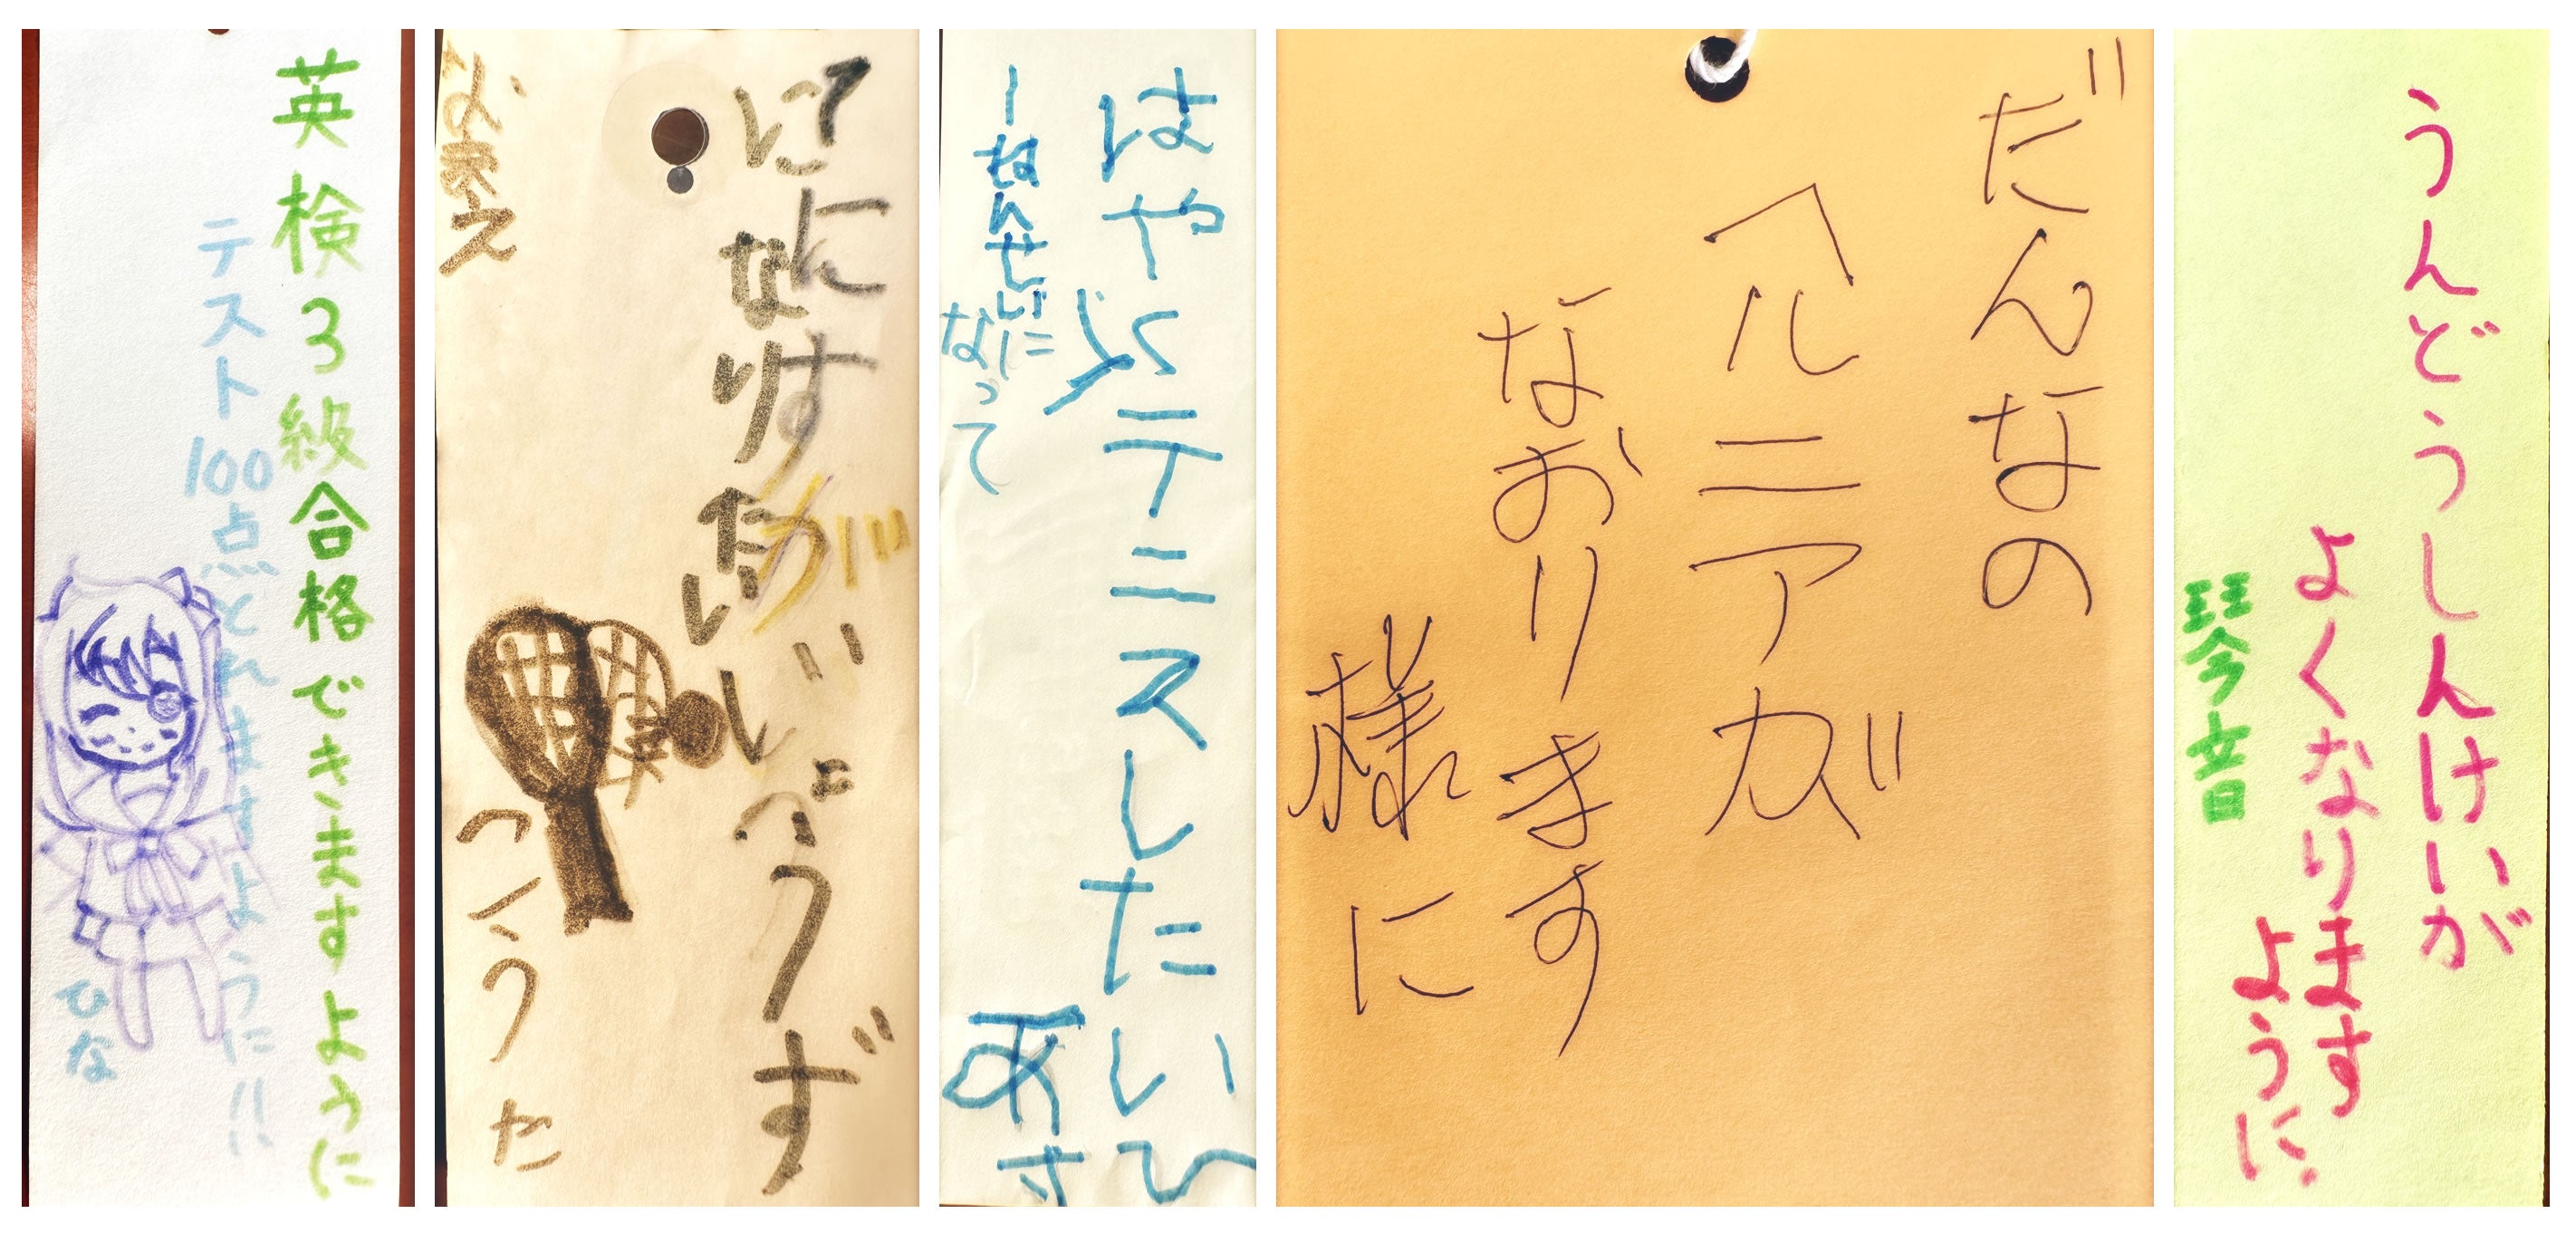 英検3級合格できますように
テスト100点とれますように!!
ひな
てにすがじょうず
になりたい
こうた
はやくテニスしたい
一ねんせいに
なって
あさひ
だんなの
ヘルニアが
なおります
様に
うんどうしんけいが
よくなります
ように.
琴音